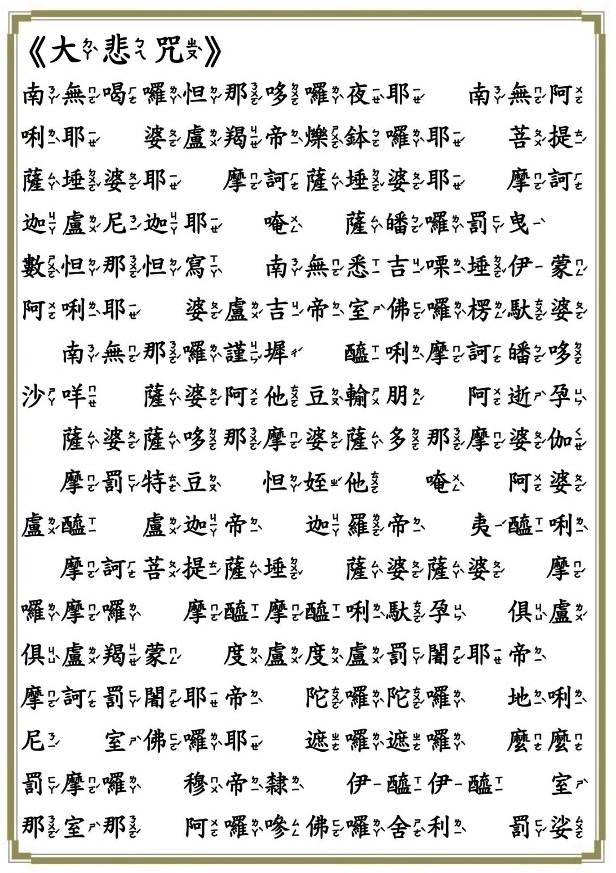 《大悲咒》
南無喝囉怛那哆囉夜耶　南無阿
唎耶　婆盧羯帝爍鉢囉耶　菩提
薩埵婆耶　摩訶薩埵婆耶　摩訶
迦盧尼迦耶　唵　薩皤囉罰曳
數怛那怛寫　南無悉吉㗚埵伊蒙
阿唎耶　婆盧吉帝室佛囉楞馱婆
　南無那囉謹墀　醯唎摩訶皤哆
沙咩　薩婆阿他豆輸朋　阿逝孕
　薩婆薩哆那摩婆薩多那摩婆伽
　摩罰特豆　怛姪他　唵　阿婆
盧醯　盧迦帝　迦羅帝　夷醯唎
　摩訶菩提薩埵　薩婆薩婆　摩
囉摩囉　摩醯摩醯唎馱孕　俱盧
俱盧羯蒙　度盧度盧罰闍耶帝
摩訶罰闍耶帝　陀囉陀囉　地唎
尼　室佛囉耶　遮囉遮囉　麼麼
罰摩囉　穆帝隸　伊醯伊醯　室
那室那　阿囉嘇佛囉舍利　罰娑